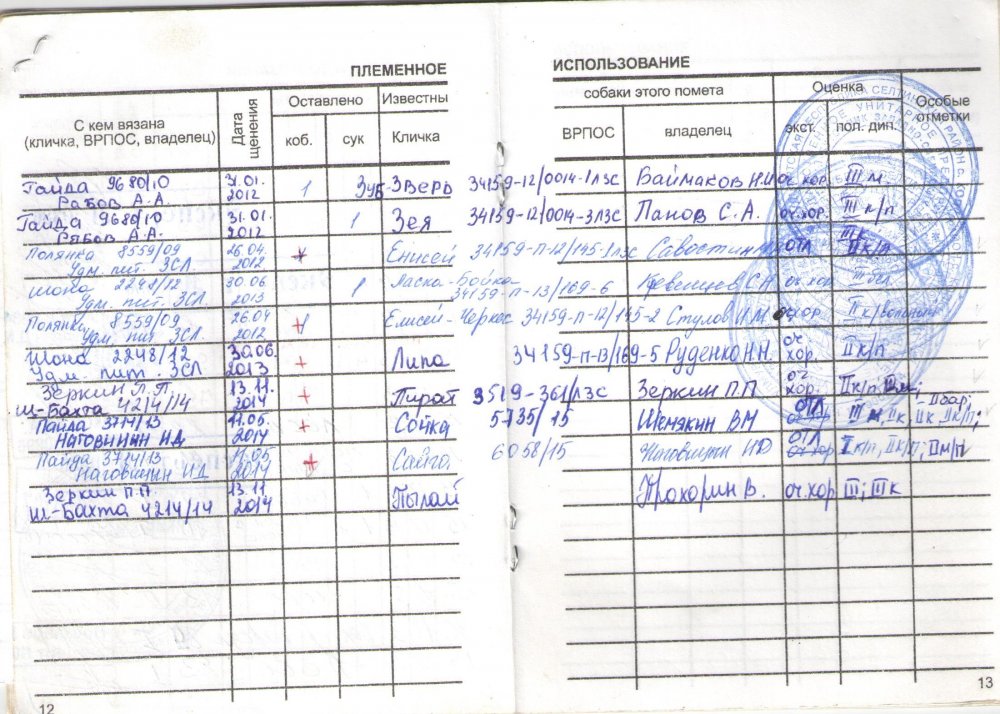 ПЛЕМЕННОЕ
С кем вязана
(кличка, ВРПОС, владелец)
Дата
щенения
Оставлено
коб.
сук
Известны
Кличка
Гайда 9680/10
Рябов А.А.
31.01.
2012
1
Зверь
Гайда 9680/10
Рябов А.А.
31.01.
2012
1
Зея
Полянка 8559/09
Удм. пит. ЗСЛ
26.04
2012
Енисей
Шона 2248/12
Удм. пит. ЗСЛ
30.06
2013
1
Ласка-Бойка
Полянка 8559/09
Удм. пит. ЗСЛ.
26.04
2012
Елисей-Черкес
Шона 2248/12
Удм. пит. ЗСЛ
30.06.
2013
+
Липа
Зеркин П.П.
Ш-Бахта 4214/14
13.11.
2014
+
Пират
Пайда 3714/13
Наговицин ИД
11.05.
2014
+
Сойка
Пайда 3714/13
Наговицин ИД
11.05
2014
Сайга
Зеркин П.П.
Ш-Бахта 4214/14
13.11
2014
Пылай
12
ИСПОЛЬЗОВАНИЕ
собаки этого помета
ВРПОС
владелец
Оценка
экст.
пол. дип.
Особые
отметки
34159-12/0014-1лзс
Ваймаков
оч хор.
III м
34159-12/0014-3лзс
Панов С.А.
оч.хор.
III к/п
34159-п-12/145-1лзс
отл
II к/п
34159-п-13/169-6
оч.хор
34159-п-12/145-2
Стулов
34159-п-13/169-5
Руденко Н.Н.
оч
хор.
II к/п
3519-361/лзс
Зеркин П.П
оч
хор.
II к/п
5735/15
Шемякин ВМ
отл
6058/15
Наговицин ИД
отл
II м/п
Прохорин В.
оч.хор
III; III к
13